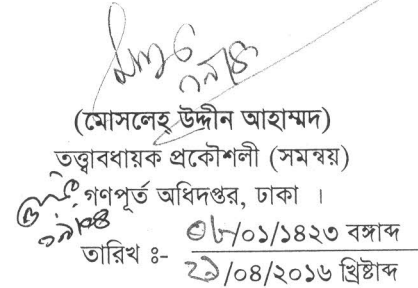 (মোসলেহ্ উদ্দীন আহাম্মদ)
তত্ত্বাবধায়ক প্রকৌশলী (সমন্বয়)
গণপূর্ত অধিদপ্তর, ঢাকা ।
০৮/০১/১৪২৩ বঙ্গাব্দ
তারিখ ঃ-
২১/০৪/২০১৬ খ্রিষ্টাব্দ